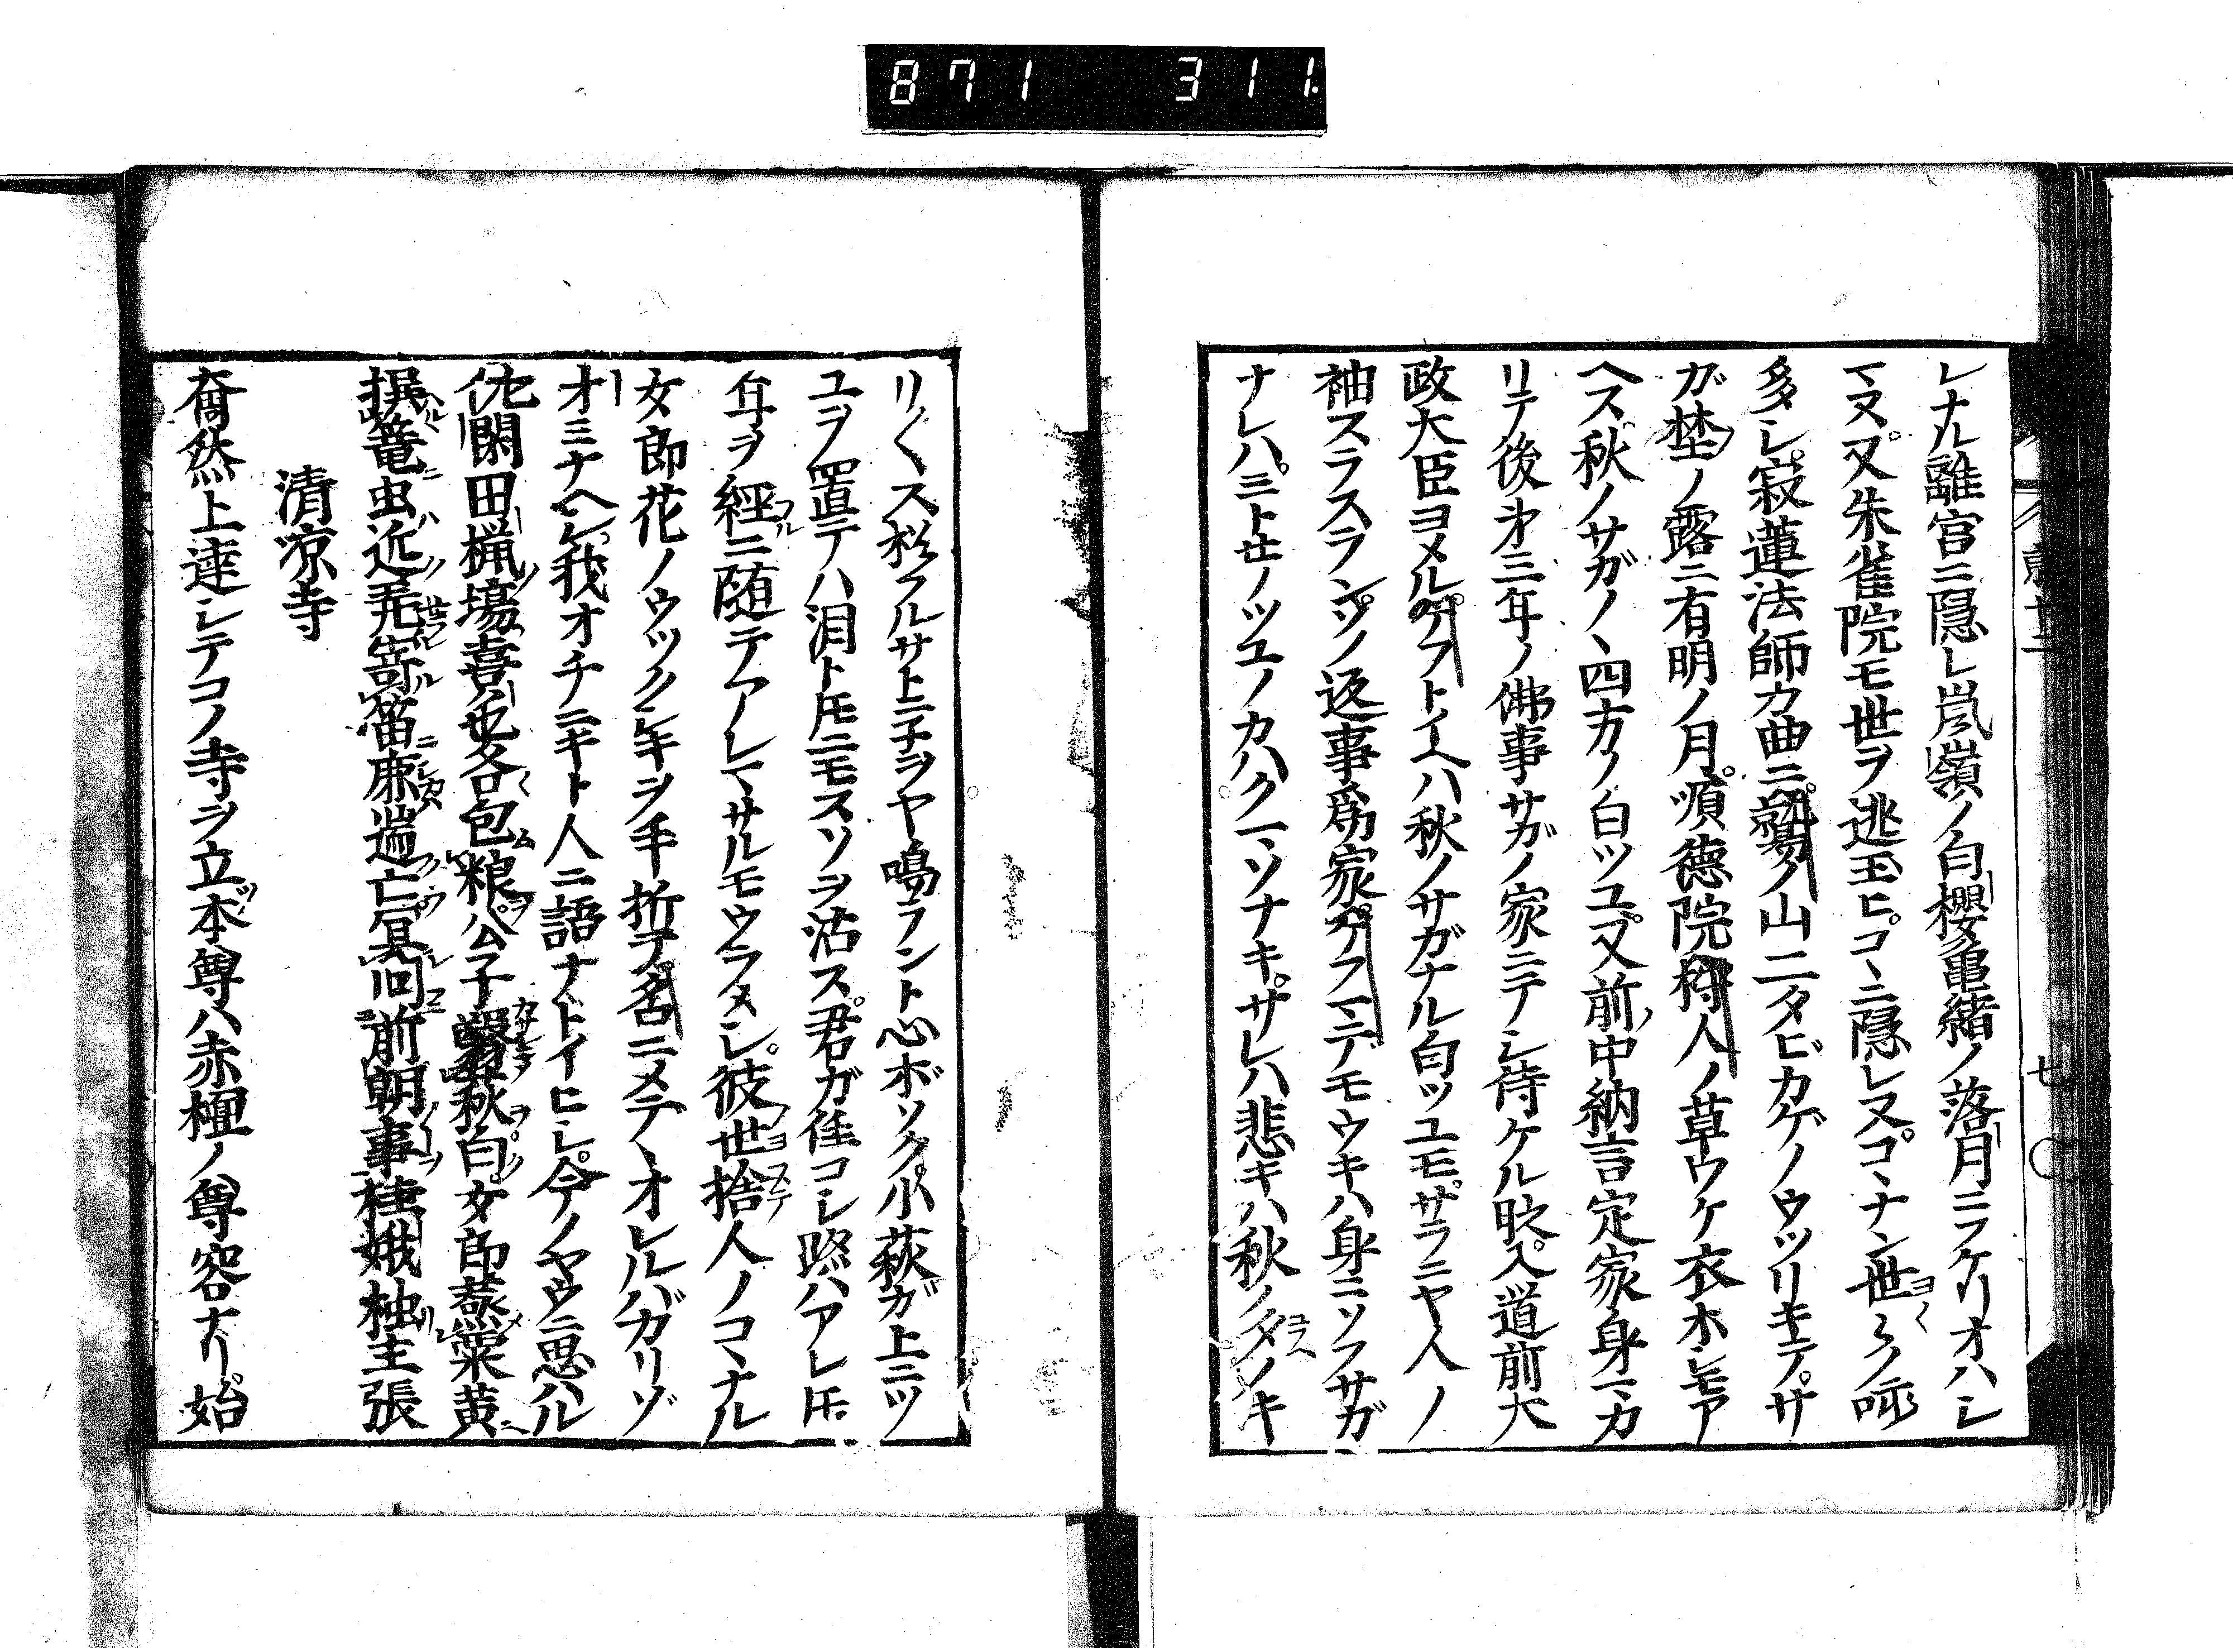 871 311.
レナル離宮ニ隠レ嵐嶺ノ白櫻亀緒ノ落月ニフケリオハシ
マヌ又朱雀院モ世ヲ逃玉ヒコヽニ隠レ又コヽナン世々ノ
多シ寂蓮法師カ曲ニ ノ山二タビカゲノウツリキテサ
ガ埜ノ露ニ有明ノ月順徳院 人ノ草ウケ衣ホシモア
ヘス秋ノサガノヽ四方ノ白ツユ又前中納言定家身マカ
リテ後第三年ノ佛事サガノ家ニテシ侍ケル時入道前大
政大臣ヨメルケフトイヘハ秋ノサガナル白ツユモサラニヤ人ノ
袖スラスランソノ返事為家ケフマデモウキハ身ニソフサガ
ナレハミトセノツユノカハクマソナキサレハ悲キハ秋ノタメキ
リ〱ス杉フルサトニ子ヲヤ鳴ラント心ボソク小萩ガ上ニツ
ユヲ置テハ泪トモニモスソヲ沾ス君ガ住コシ跡ハアレ𪜈
年ヲ経ニ随テアレマサルモウラメシ彼世捨人ノコヽナル
女郎花ノウツクシキヲ手折テ名ニメテヽオレルバガリゾ
オミナヘシ我オチニキト人ニ語ナトイヒシ今ノヤウニ思ハル
 閑田猟場喜ノ也各包粮公子 秋白女郎惹粟黄
撰篭虫近 笛 遊亡冥問前朝事 娥独主張
清凉寺
奝然上達シテコノ寺ヲ立本尊ハ赤栴ノ尊容ナリ始